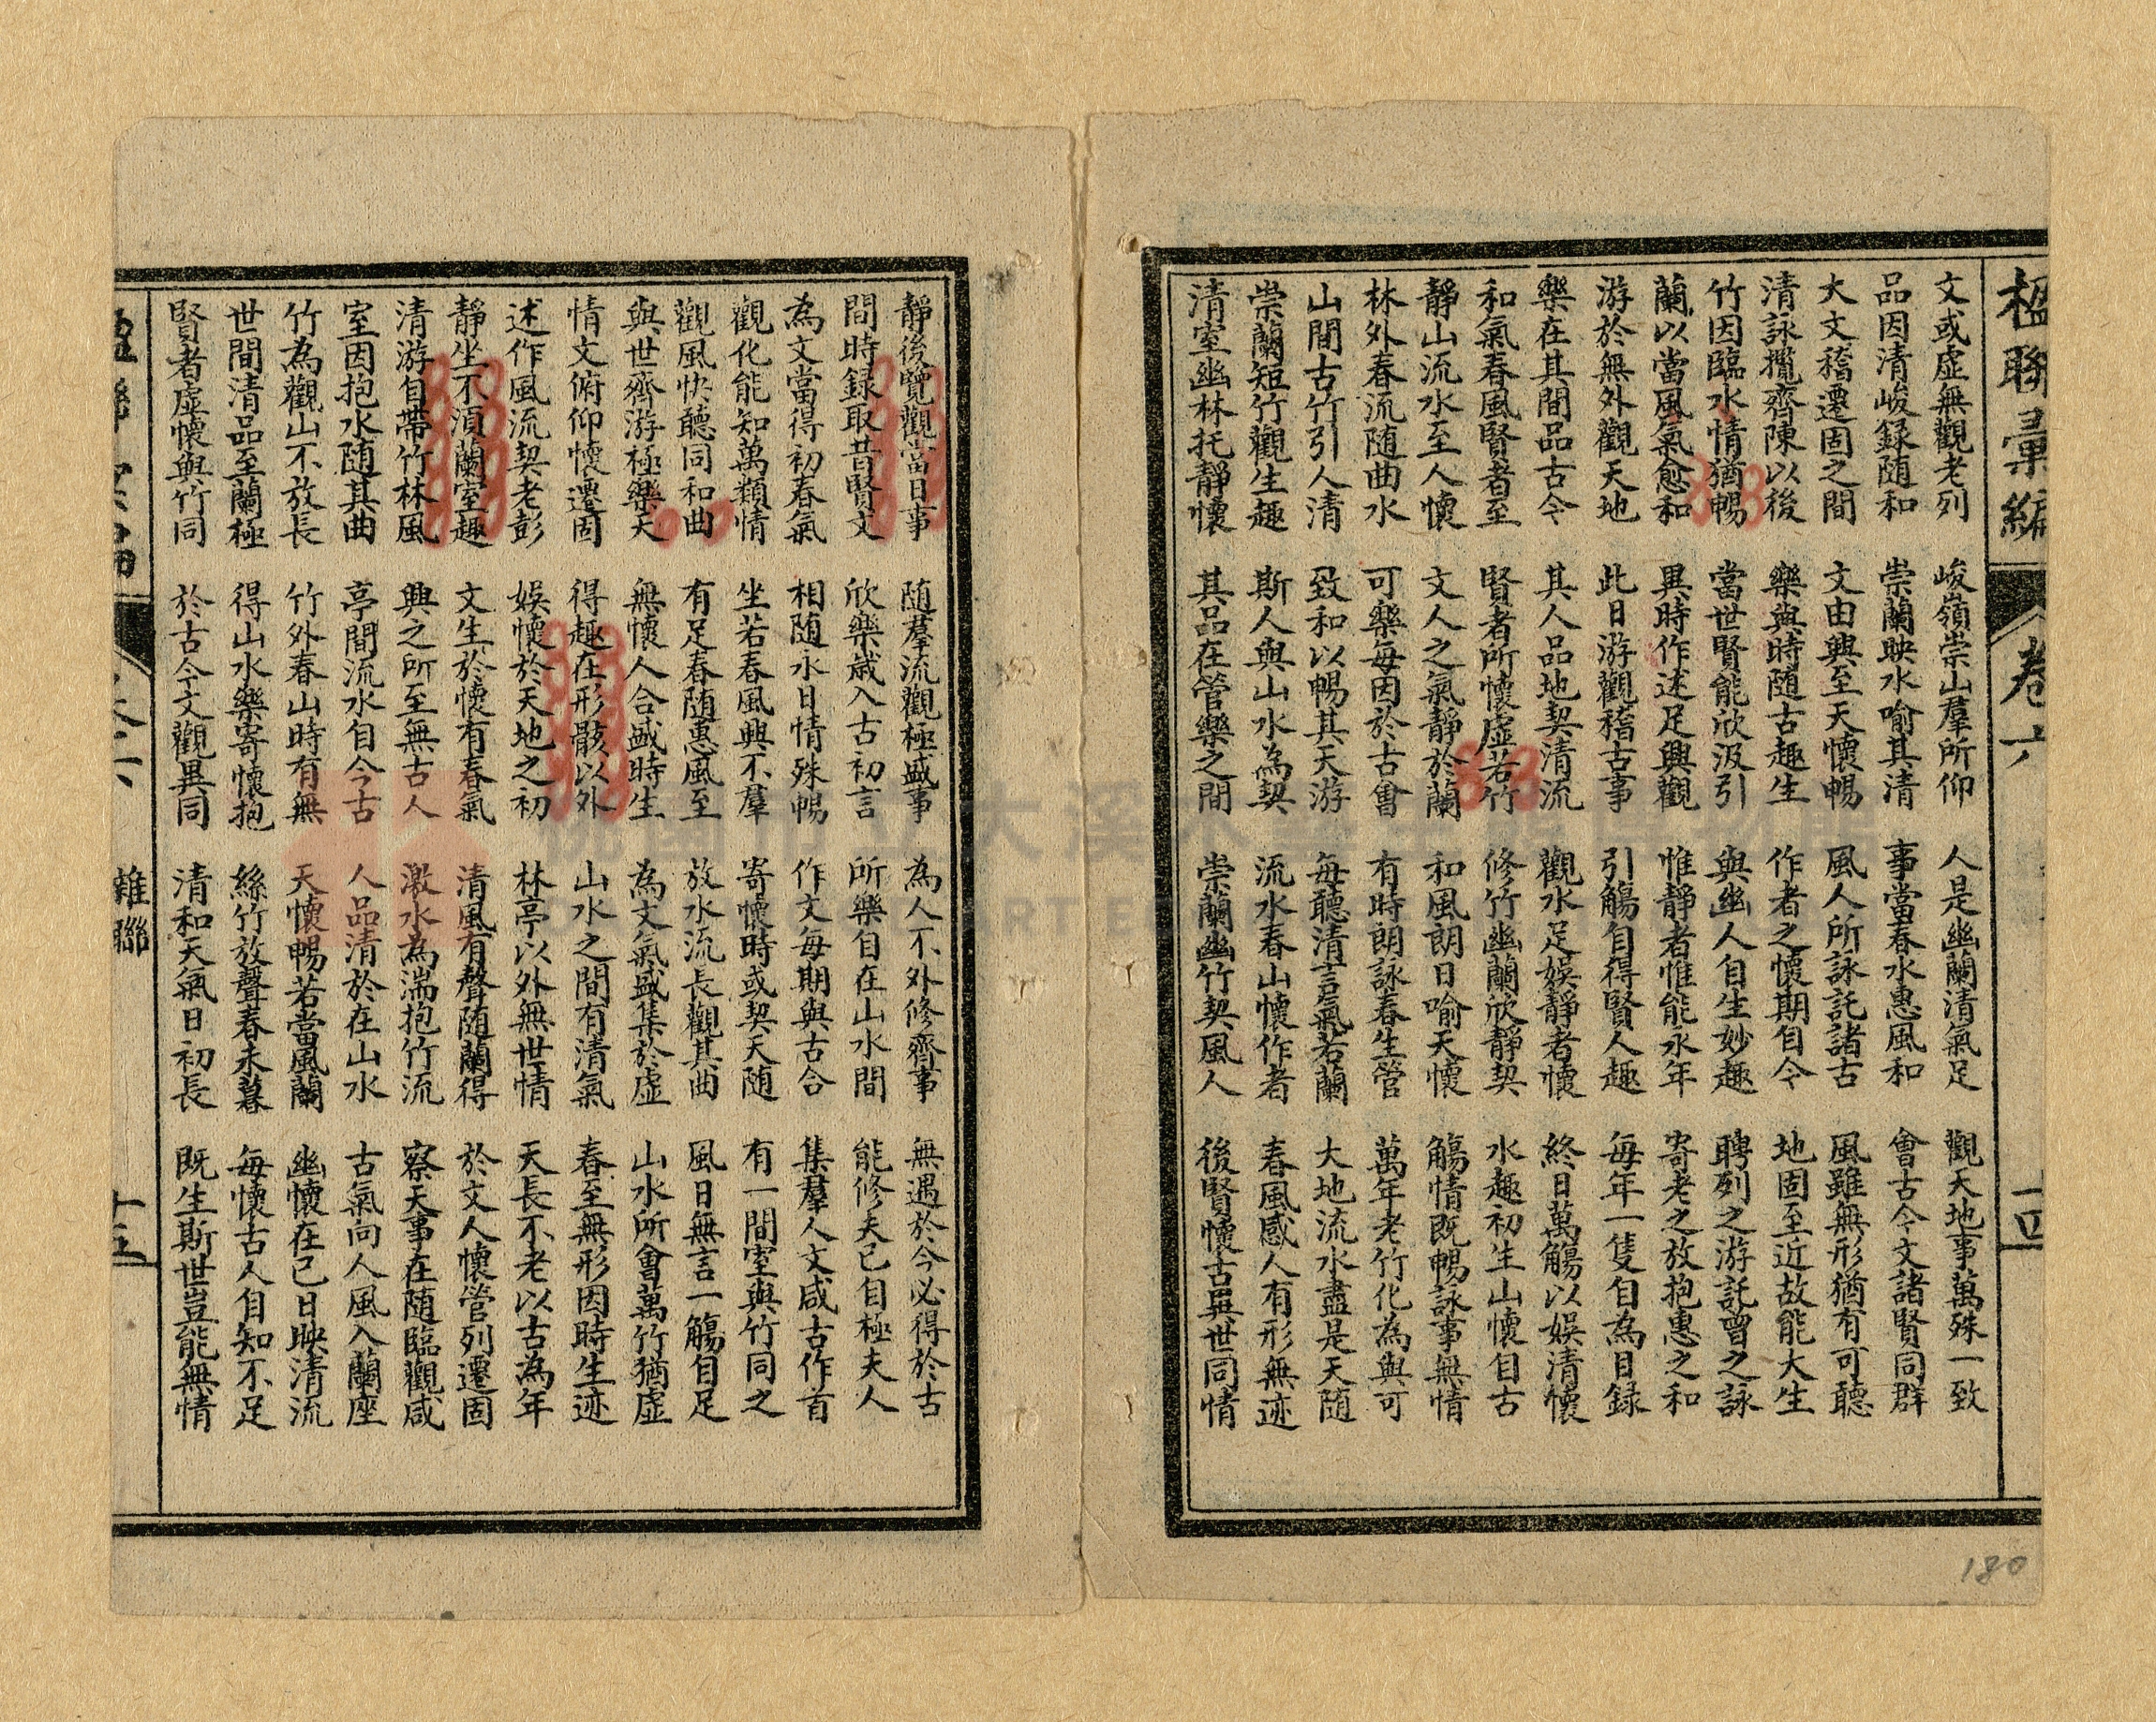 楹聯彙編 卷六 十五
文或虛無觀老列 峻嶺崇山羣所仰 人是幽蘭清氣足 觀天地事萬殊一致
品因清峻録随和 崇蘭映水喻其清 事當春水惠風和 會古今文諸賢同群
大文稽遷固之間 文由興至天懷暢 風人所詠託諸古 風雖無形猶有可聽
清詠攬齊陳以後 樂與時随古趣生 作者之懷期自今 地固至近故能大生
竹因臨水情猶暢 當世賢能欣汲引 與幽人自生妙趣 聘列之游託曾之詠
蘭以當風氣愈和 異時作述足興觀 惟靜者惟能永年 寄老之放抱惠之和
游於無外觀天地 此日游觀稽古事 引觴自得賢人趣 每年一隻自為目録
樂在其間品古今 其人品地契清流 觀水足娛靜者懷 終日萬觴以娛清懷
和氣春風賢者至 賢者所懷虛若竹 修竹幽蘭欣靜契 水趣初生山懷自古
靜山流水至人懷 文人之氣靜於蘭 和風朗日喻天懷 觴情既暢詠事無情
林外春流随曲水 可樂每因於古會 有時朗詠春生管 萬年老竹化為與可
山間古竹引人清 致和以暢其天游 每聽清言氣若蘭 大地流水盡是天随
崇蘭短竹觀生趣 斯人與山水為契 流水春山懷作者 春風感人有形無迹
清室幽林托靜懷 其品在管樂之間 崇蘭幽竹契風人 後賢懷古異世同情
180
靜後覽觀當日事 随羣流觀極盛事 為人不外修齊事 無遇於今必得於古
間時録取昔賢文 欣樂咸入古初言 所樂自在山水間 能修夫己自極夫人
為文當得初春氣 相随永日情殊暢 作文每期與古合 集羣人文咸古作首
觀化能知萬類情 坐若春風興不羣 寄懷時或契天随 有一間室與竹同之
觀風快聽同和曲 有足春随惠風至 放水流長觀其曲 風日無言一觴自足
與世齊游極樂天 無懷人合盛時生 為文氣盛集於虛 山水所會萬竹猶虛
情文俯仰懷遷固 得趣在形骸以外 山水之間有清氣 春至無形因時生迹
述作風流契老彭 娛懷於天地之初 林亭以外無世情 天長不老以古為年
靜坐不須蘭室趣 文生於懷有春氣 清風有聲随蘭得 於文人懷管列遷固
清游自帶竹林風 興之所至無古人 激水為湍抱竹流 察天事在随臨觀咸
室因抱水随其曲 亭間流水自今古 人品清於在山水 古氣向人風入蘭座
竹為觀山不放長 竹外春山時有無 天懷暢若當風蘭 幽懷在己日映清流
世間清品至蘭極 得山水樂寄懷抱 絲竹放聲春未暮 每懷古人自知不足
賢者虛懷與竹同 於古今文觀異同 清和天氣日初長 既生斯世豈能無情
雜聯 十五